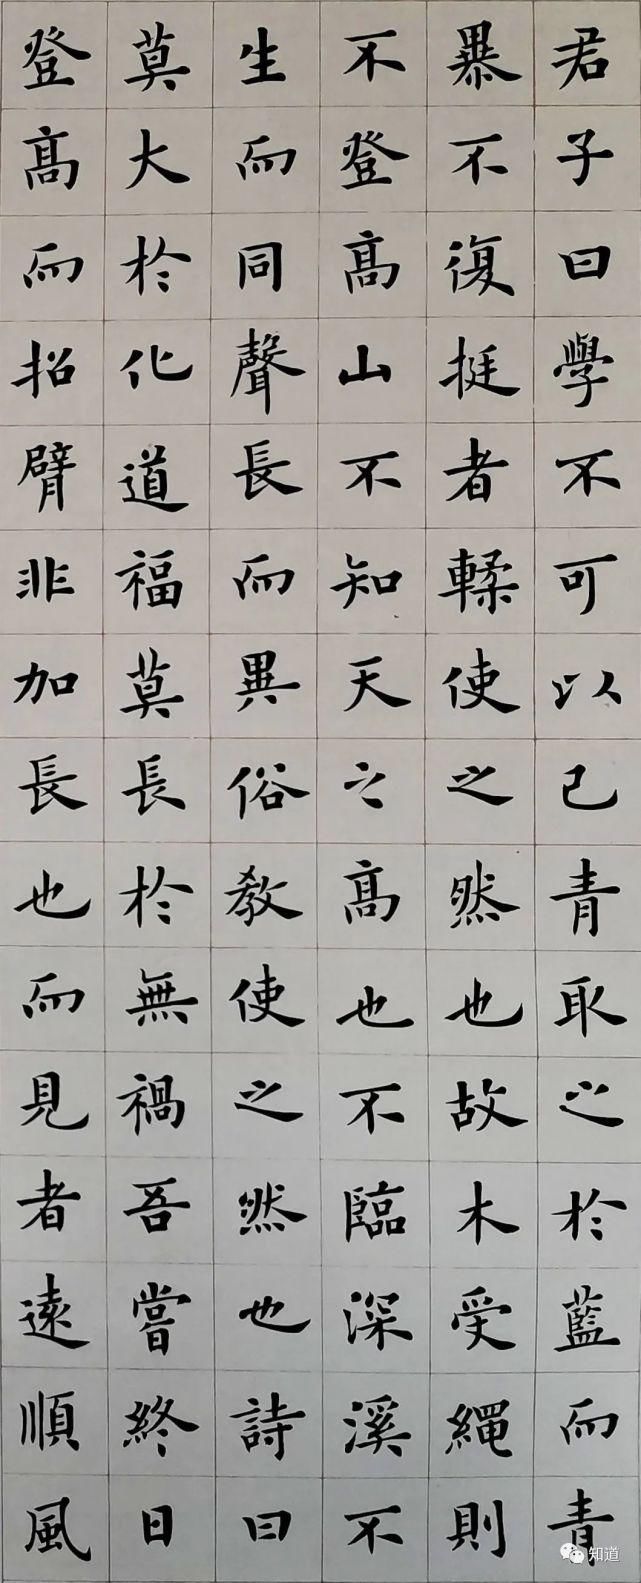 君子曰學不可以已青取之於藍而青
暴不復挺者輮使之然也故木受繩則
不登髙山不知天之髙也不臨深溪不
生而同聲長而異俗教使之然也詩曰
莫大於化道福莫長於無禍吾嘗終日
登髙而招臂非加長也而見者遠順風
知道